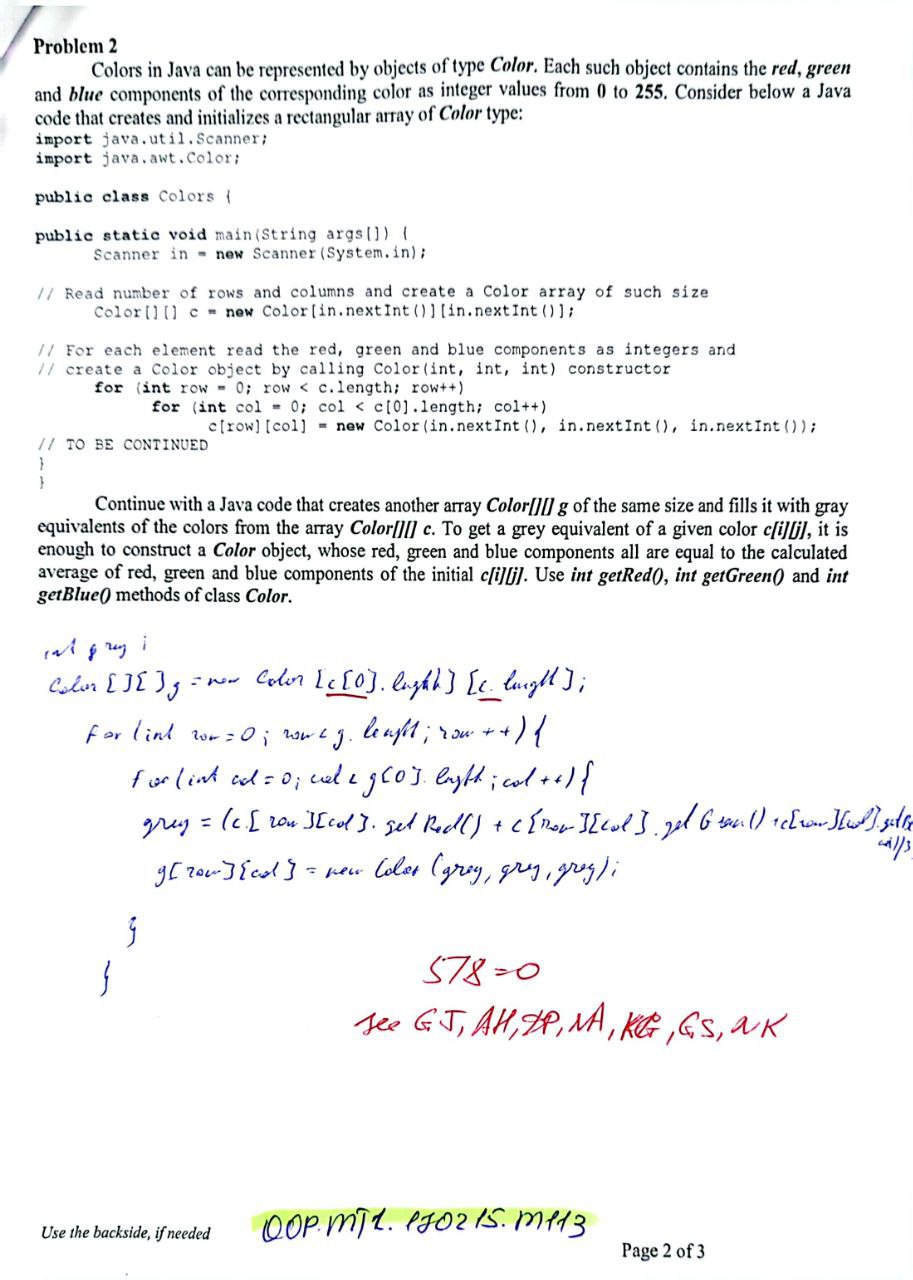 Problem 2
Colors in Java can be represented by objects of type Color. Each such object contains the red, green
and blue components of the corresponding color as integer values from 0 to 255. Consider below a Java
code that creates and initializes a rectangular array of Color type:
import java.util.Scanner;
import java.awt.Color;
public class Colors {
public static void main(String args[]) {
Scanner in = new Scanner(System.in);
// Read number of rows and columns and create a Color array of such size
Color[][] c = new Color[in.nextInt()][in.nextInt()];
// For each element read the red, green and blue components as integers and
// create a Color object by calling Color(int, int, int) constructor
for (int row = 0; row < c.length; row++)
for (int col = 0; col < c[0].length; col++)
c[row][col] = new Color(in.nextInt(), in.nextInt(), in.nextInt());
// TO BE CONTINUED
}
}
Continue with a Java code that creates another array Color[][] g of the same size and fills it with gray
equivalents of the colors from the array Color[][] c. To get a grey equivalent of a given color c[i][j], it is
enough to construct a Color object, whose red, green and blue components all are equal to the calculated
average of red, green and blue components of the initial c[i][j]. Use int getRed(), int getGreen() and int
getBlue() methods of class Color.
int grey;
Color [][] g = new Color [c[0].length] [c.length];
for (int row = 0; row < g.length; row ++) {
for (int col = 0; col < g[0].length; col ++) {
grey = (c.[row][col].getRed() + c[row][col].getGreen() + c[row][col].
g[row][col] = new Color (grey, grey, grey);
}
}
578=0
see GJ, AH, ZP, NA, KG, GS,
Use the backside, if needed
OOP.MT1.
Page 2 of 3